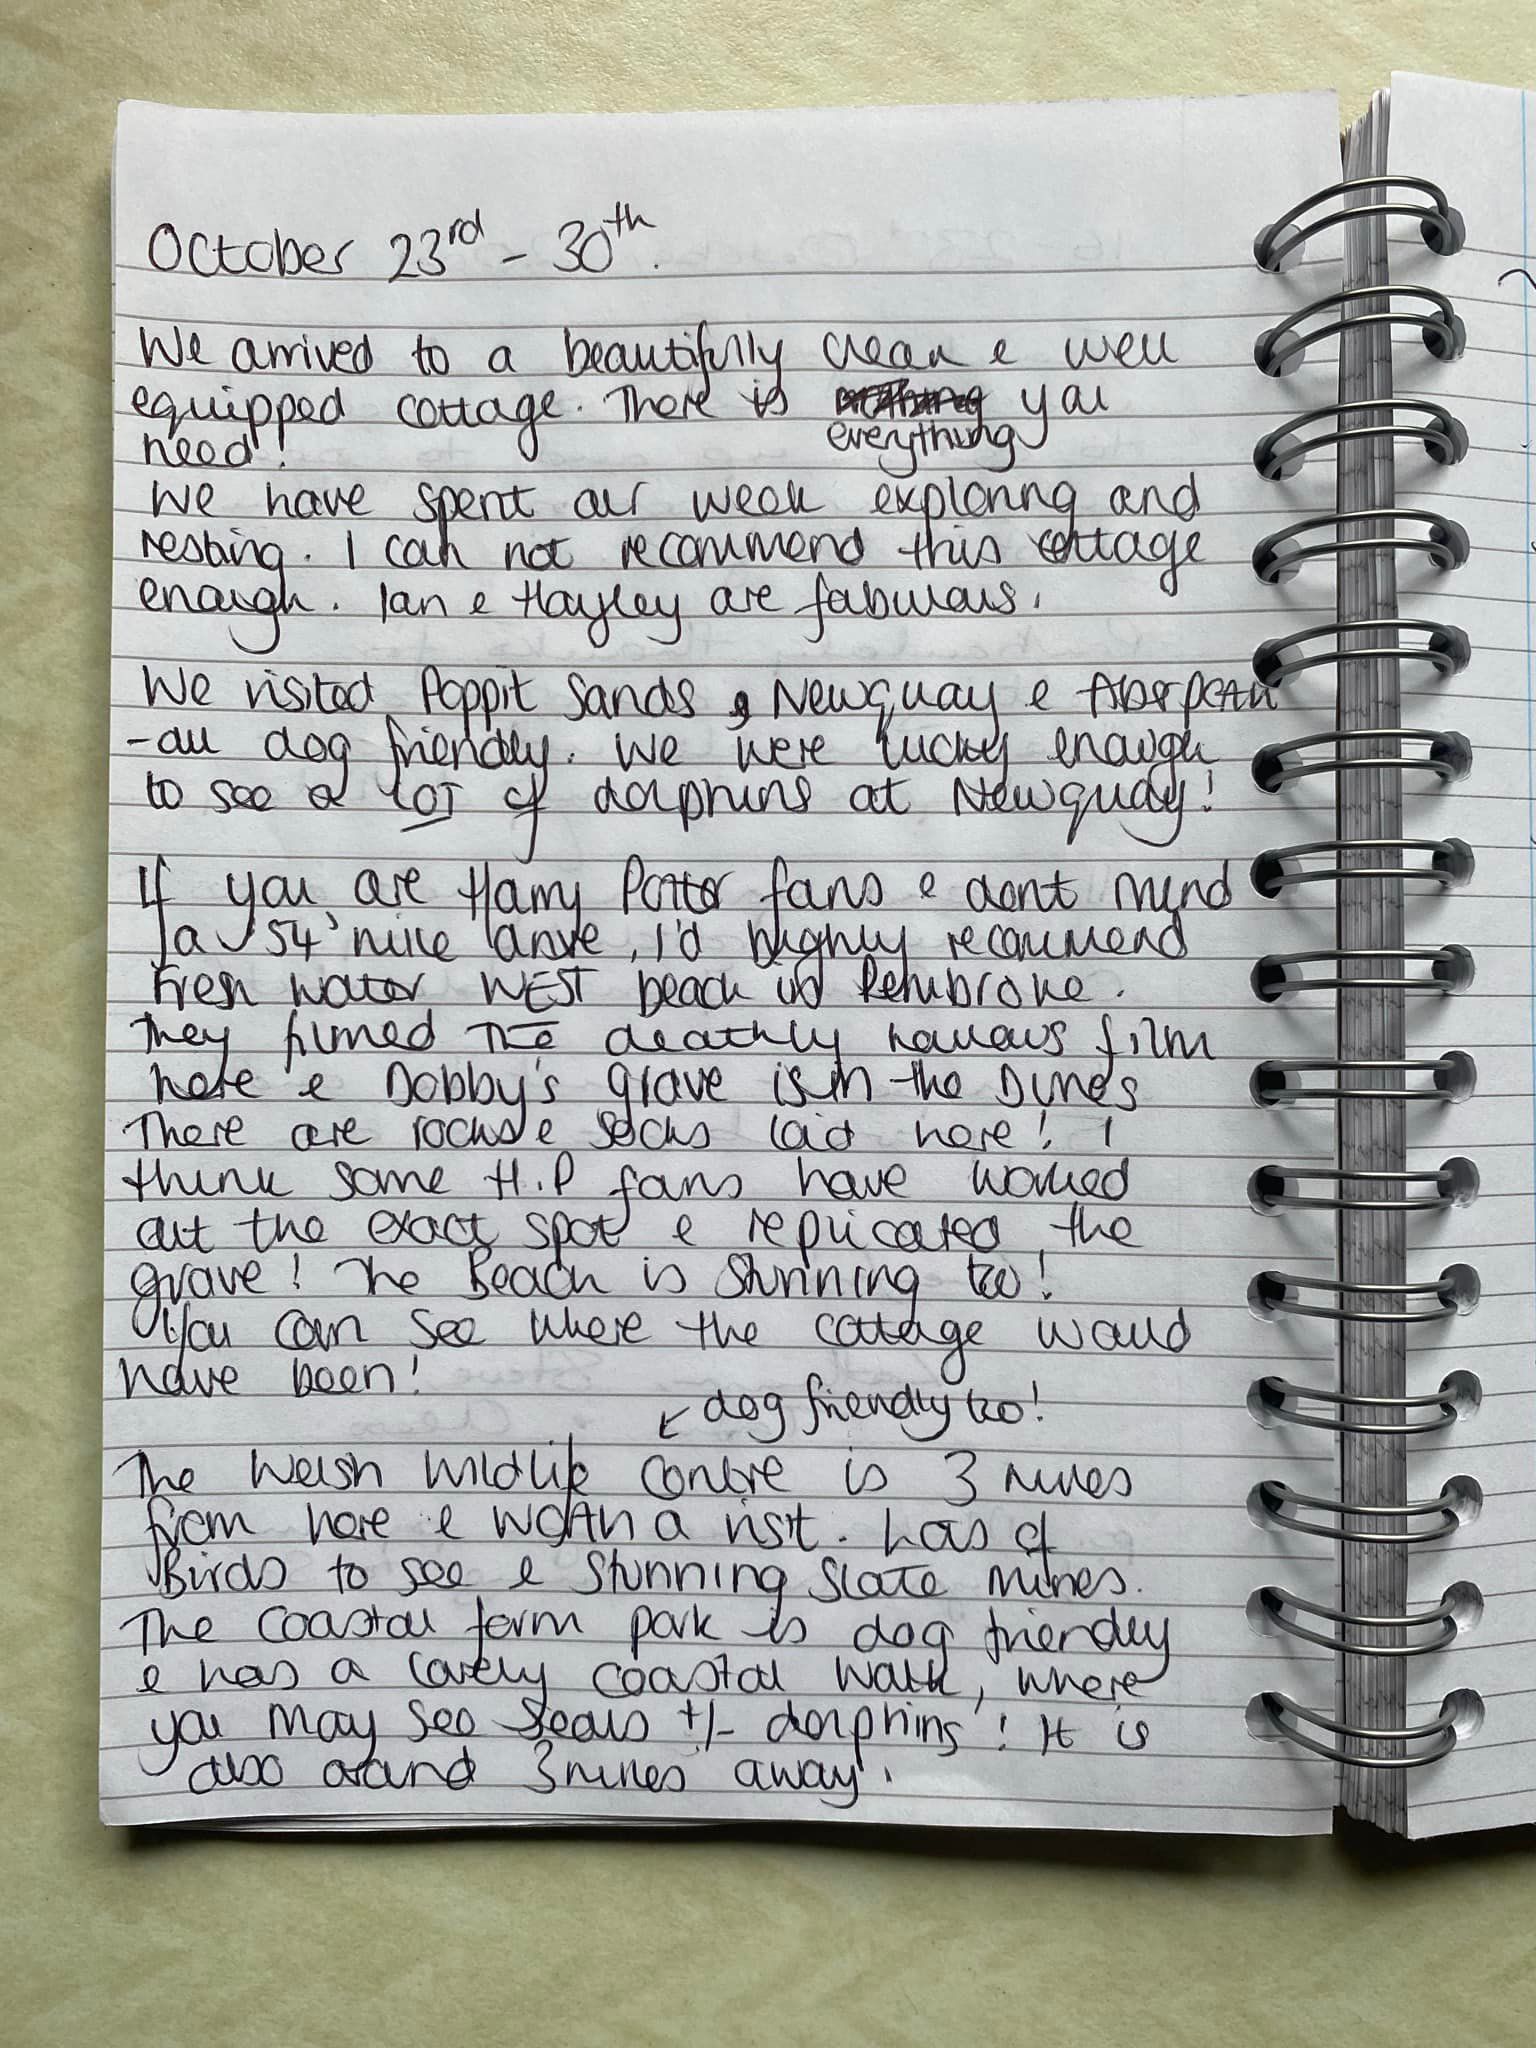 October 23rd - 30th.
We arrived to a beautifully clean & well
equipped cottage. There is everything you
need!
We have spent our week exploring and
resting. I can not recommend this cottage
enough. Ian & Hayley are fabulous.
We visited Poppit Sands, Newquay &
- all dog friendly. We were lucky enough
to see a LOT of dolphins at Newquay!
If you are Harry Potter fans & dont mind
a 54 mile drive, I'd highly recommend
Fresh water WEST beach in Pembroke.
They filmed The deathly hallows film
here & Dobby's grave is in the Dunes
There are rocks & socks laid here! I
think some H.P fans have worked
out the exact spot & replicated the
grave! The Beach is Stunning too!
You can see where the cottage would
have been!
↙ dog friendly too!
The Welsh Wildlife Centre is 3 miles
from here & worth a visit. Lots of
Birds to see & stunning slate mines.
The coastal farm park is dog friendly
& has a lovely coastal walk, where
you may see seals +/- dolphins! It is
also around 3 miles away.